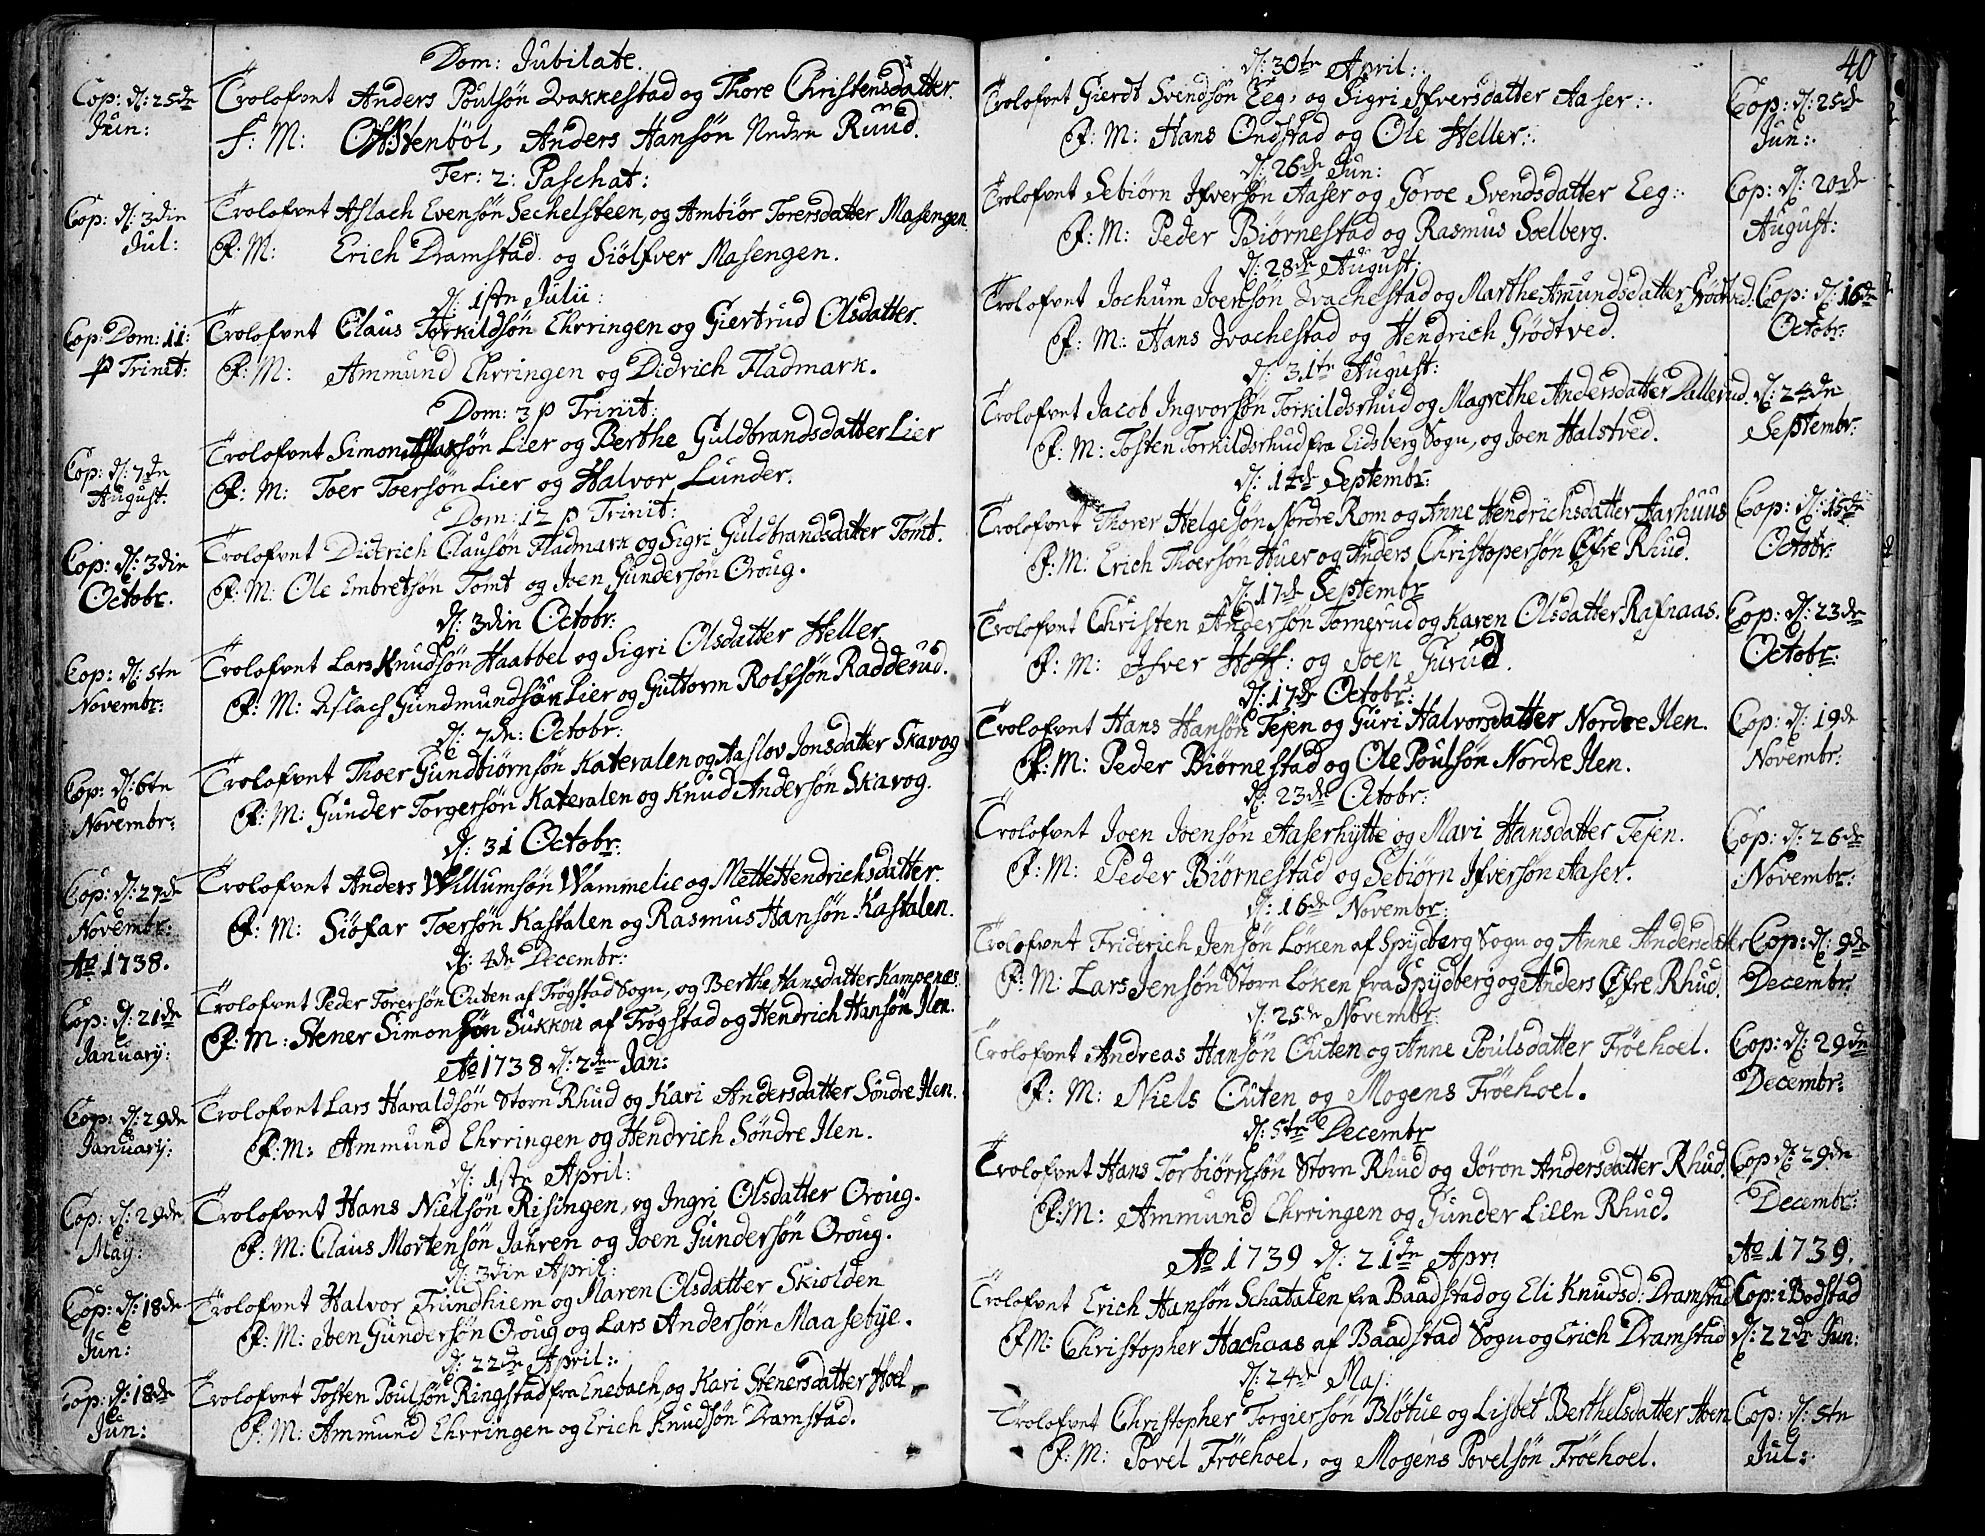 Dom: Jubilate.
Cop: d: 25de Trolofvet Anders Poulsøn Ivakkestad og Thore Christensdatter.
Jun: F: M: Anders Hansøn Nedre Ruud.
Fer: 2: Paschat:
Cop: d: 3din Trolofvet Aslach Evensøn Sechelsteen, og Ambiør Torersdatter Masengen.
Jul: F: M: Erich Dramstad og Siølfver Masengen.
d: 1ste Julii:
Cop: Dom: 11: Trolofvet Claus Torkildsøn Ehrringen og Giertrud Olsdatter.
p Trinit: F: M: Ammund Ehrringen og Didrich Fladmark.
Dom: 3 p Trinit:
Trolofvet Simon Aslaksøn Lier og Berthe Guldbrandsdatter Lier
Cop: d: 7de
August: F: M: Toer Toersøn Lier og Halvor Lunder.
Dom: 12 p Trinit:
Cop: d: 3din Trolofvet Diderich Clausøn Fladmark og Sigri Guldbrandsdatter Tomt.
Octobr. F: M: Ole Embretsøn Tomt og Joen Gundersøn Oroug.
d: 3din Octobr:
Cop: d: 5te Trolofvet Lars Knudsøn Haabbel og Sigri Olsdatter Heller.
Novembr: F: M: Aslach Gundmundsøn Lier og Guttorm Rolfsøn Radderud.
d: 7de: Octobr:
Cop: d: 6te Trolofvet Thoer Gundbiørnsøn Kateralen og Aaslov Jonsdatter Skavog
Novembr: F: M: Gunder Torgersøn Kateralen og Knud Andersøn Skavog.
d: 31 Octobr:
Cop: d: 27de Trolofvet Anders Willumsøn Wammelie og Mette Hendrichsdatter.
Novembr: F: M: Siøfar Toersøn Kastalen og Rasmus Hansøn Kastalen.
Ao 1738. d: 4de Decembr:
Cop: d: 21de Trolofvet Peder Torersøn Outen af Trøgstad Sogn, og Berthe Hansdatter Kampenæs.
January: F: M: Stener Simonsøn Sukkou af Trøgstad og Hendrich Hansøn Ilen.
Ao 1738 d: 2den Jan:
Cop: d: 29de Trolofvet Lars Haraldsøn Store Rhud og Kari Andersdatter Søndre Ilen.
January: F: M: Ammund Ehrringen og Hendrich Søndre Ilen.
d: 1ste April:
Cop: d: 29de Trolofvet Hans Nielsøn Risingen, og Ingri Olsdatter Oroug.
May: F: M: Claus Mortensøn Jahren og Joen Gundersøn Oroug.
d: 3din April:
Cop: d: 18de Trolofvet Halvor Trundhiem og Maren Olsdatter Skiolden
Jun: F: M: Joen Gundersøn Oroug og Lars Andersøn Maasebye.
d: 22de April:.
Cop: d: 18de Trolofvet Tosten Poulsøn Ringstad fra Enebach, og Kari Stenersdatter Hoel.
Jun: F: M: Ammund Ehrringen og Erich Knudsøn Dramstad.
40
d: 30te April:
Trolofvet Gierdt Svendsøn Eeg, og Sigri Ifversdatter Aaser:. Cop: d: 25de
F: M: Hans Ondstad og Ole Heller:. Jun:.
d: 26de Jun:
Trolofvet Sebiørn Ifversøn Aaser og Goroe Svendsdatter Eeg:. Cop: d: 20de
F: M: Peder Biørnestad og Rasmus Soelberg. August:
d: 28de August:
Trolofvet Jochum Joensøn Ivachestad og Marthe Amundsdatter Grødtved. Cop: d: 16de
F: M: Hans Ivachestad og Hendrich Grødtved. Octobr:
d: 31te August:
Trolofvet Jacob Ingvorsøn Torkildsrhud og Magrethe Andersdatter Dallerud. d: 24de
F: M: Tosten Torkildsrhud fra Eidsberg Sogn, og Joen Halstved. Septembr:
d: 12de Septembr:
Trolofvet Thorer Helgesøn Nordre Rom og Anne Hendrichsdatter Aarhuus Cop: d: 15de
F: M: Erich Thoersøn Huer og Anders Christopersøn Øfre Rhud. Octobr:
d: 17de Septembr
Trolofvet Christen Andersøn Tomerud og Karen Olsdatter Rafnaas. Cop: d: 23de
F: M: Ifver Hoff: og Joen Gurud. Octobr:
d: 17de Octobr:
Trolofvet Hans Hansøn Tejen og Guri Halvorsdatter Nordre Ilen. Cop: d: 19de
F: M: Peder Biørnestad og Ole Poulsøn Nordre Ilen. Novembr:
d: 23de Octobr:
Trolofvet Joen Joensøn Aaserhytte og Mari Hansdatter Tejen. Cop: d: 26de
F: M: Peder Biørnestad og Sebiørn Ifversøn Aaser. Novembr:
d: 16de Novembr:
Trolofvet Friderich Jensøn Løken af Spydberg Sogn og Anne Andersdatter Cop: d: 9de
F: M: Lars Jensøn Store Løken fra Spydberg og Anders Øfre Rhud. Decembr
d: 25de Novembr:
Trolofvet Andreas Hansøn Outen og Anne Poulsdatter Frøehoel. Cop: d: 29de
F: M: Niels Outen og Mogens Frøehoel. Decembr:
d: 5te Decembr
Trolofvet Hans Torbiørnsøn Store Rhud og Jøron Andersdatter Rhud. Cop d: 29de
F: M: Ammund Ehrringen og Gunder Lille Rhud. Decembr:
Ao 1739 d: 21de Apr: Ao 1739.
Trolofvet Erich Hansøn Schatalen fra Baadstad og Eli Knudsd: Dramstad Cop: i Bodstad
F: M: Christopher Hachaas af Baadstad Sogn og Erich Dramstad d: 22de Jun:
d: 24de Maj:
Trolofvet Christopher Torgiersøn Bløtue og Lisbet Berthelsdatter Hoen Cop: d: 5te
F: M: Povel Frøehoel, og Mogens Povelsøn Frøehoel. Jul:.